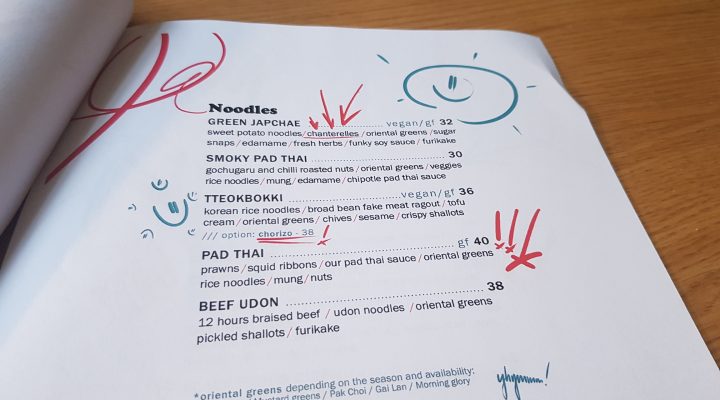 Noodles
GREEN JAPCHAE ........................ vegan/gf 32
sweet potato noodles/chanterelles/oriental greens/sugar
snaps/edamame/fresh herbs/funky soy sauce/furikake
SMOKY PAD THAI ........................ 30
gochugaru and chilli roasted nuts/oriental greens/veggies
rice noodles/mung/edamame/chipotle pad thai sauce
TTEOKBOKKI ........................ vegan/gf 36
korean rice noodles/broad bean fake meat ragout/tofu
cream/oriental greens/chives/sesame/crispy shallots
/// option: chorizo - 38 !
PAD THAI ........................ gf 40 !!!
prawns/squid ribbons/our pad thai sauce/oriental greens
rice noodles/mung/nuts
BEEF UDON ........................ 38
12 hours braised beef/udon noodles/oriental greens
pickled shallots/furikake
*oriental greens depending on the season and availability:
Mustard greens / Pak Choi / Gai Lan / Morning glory